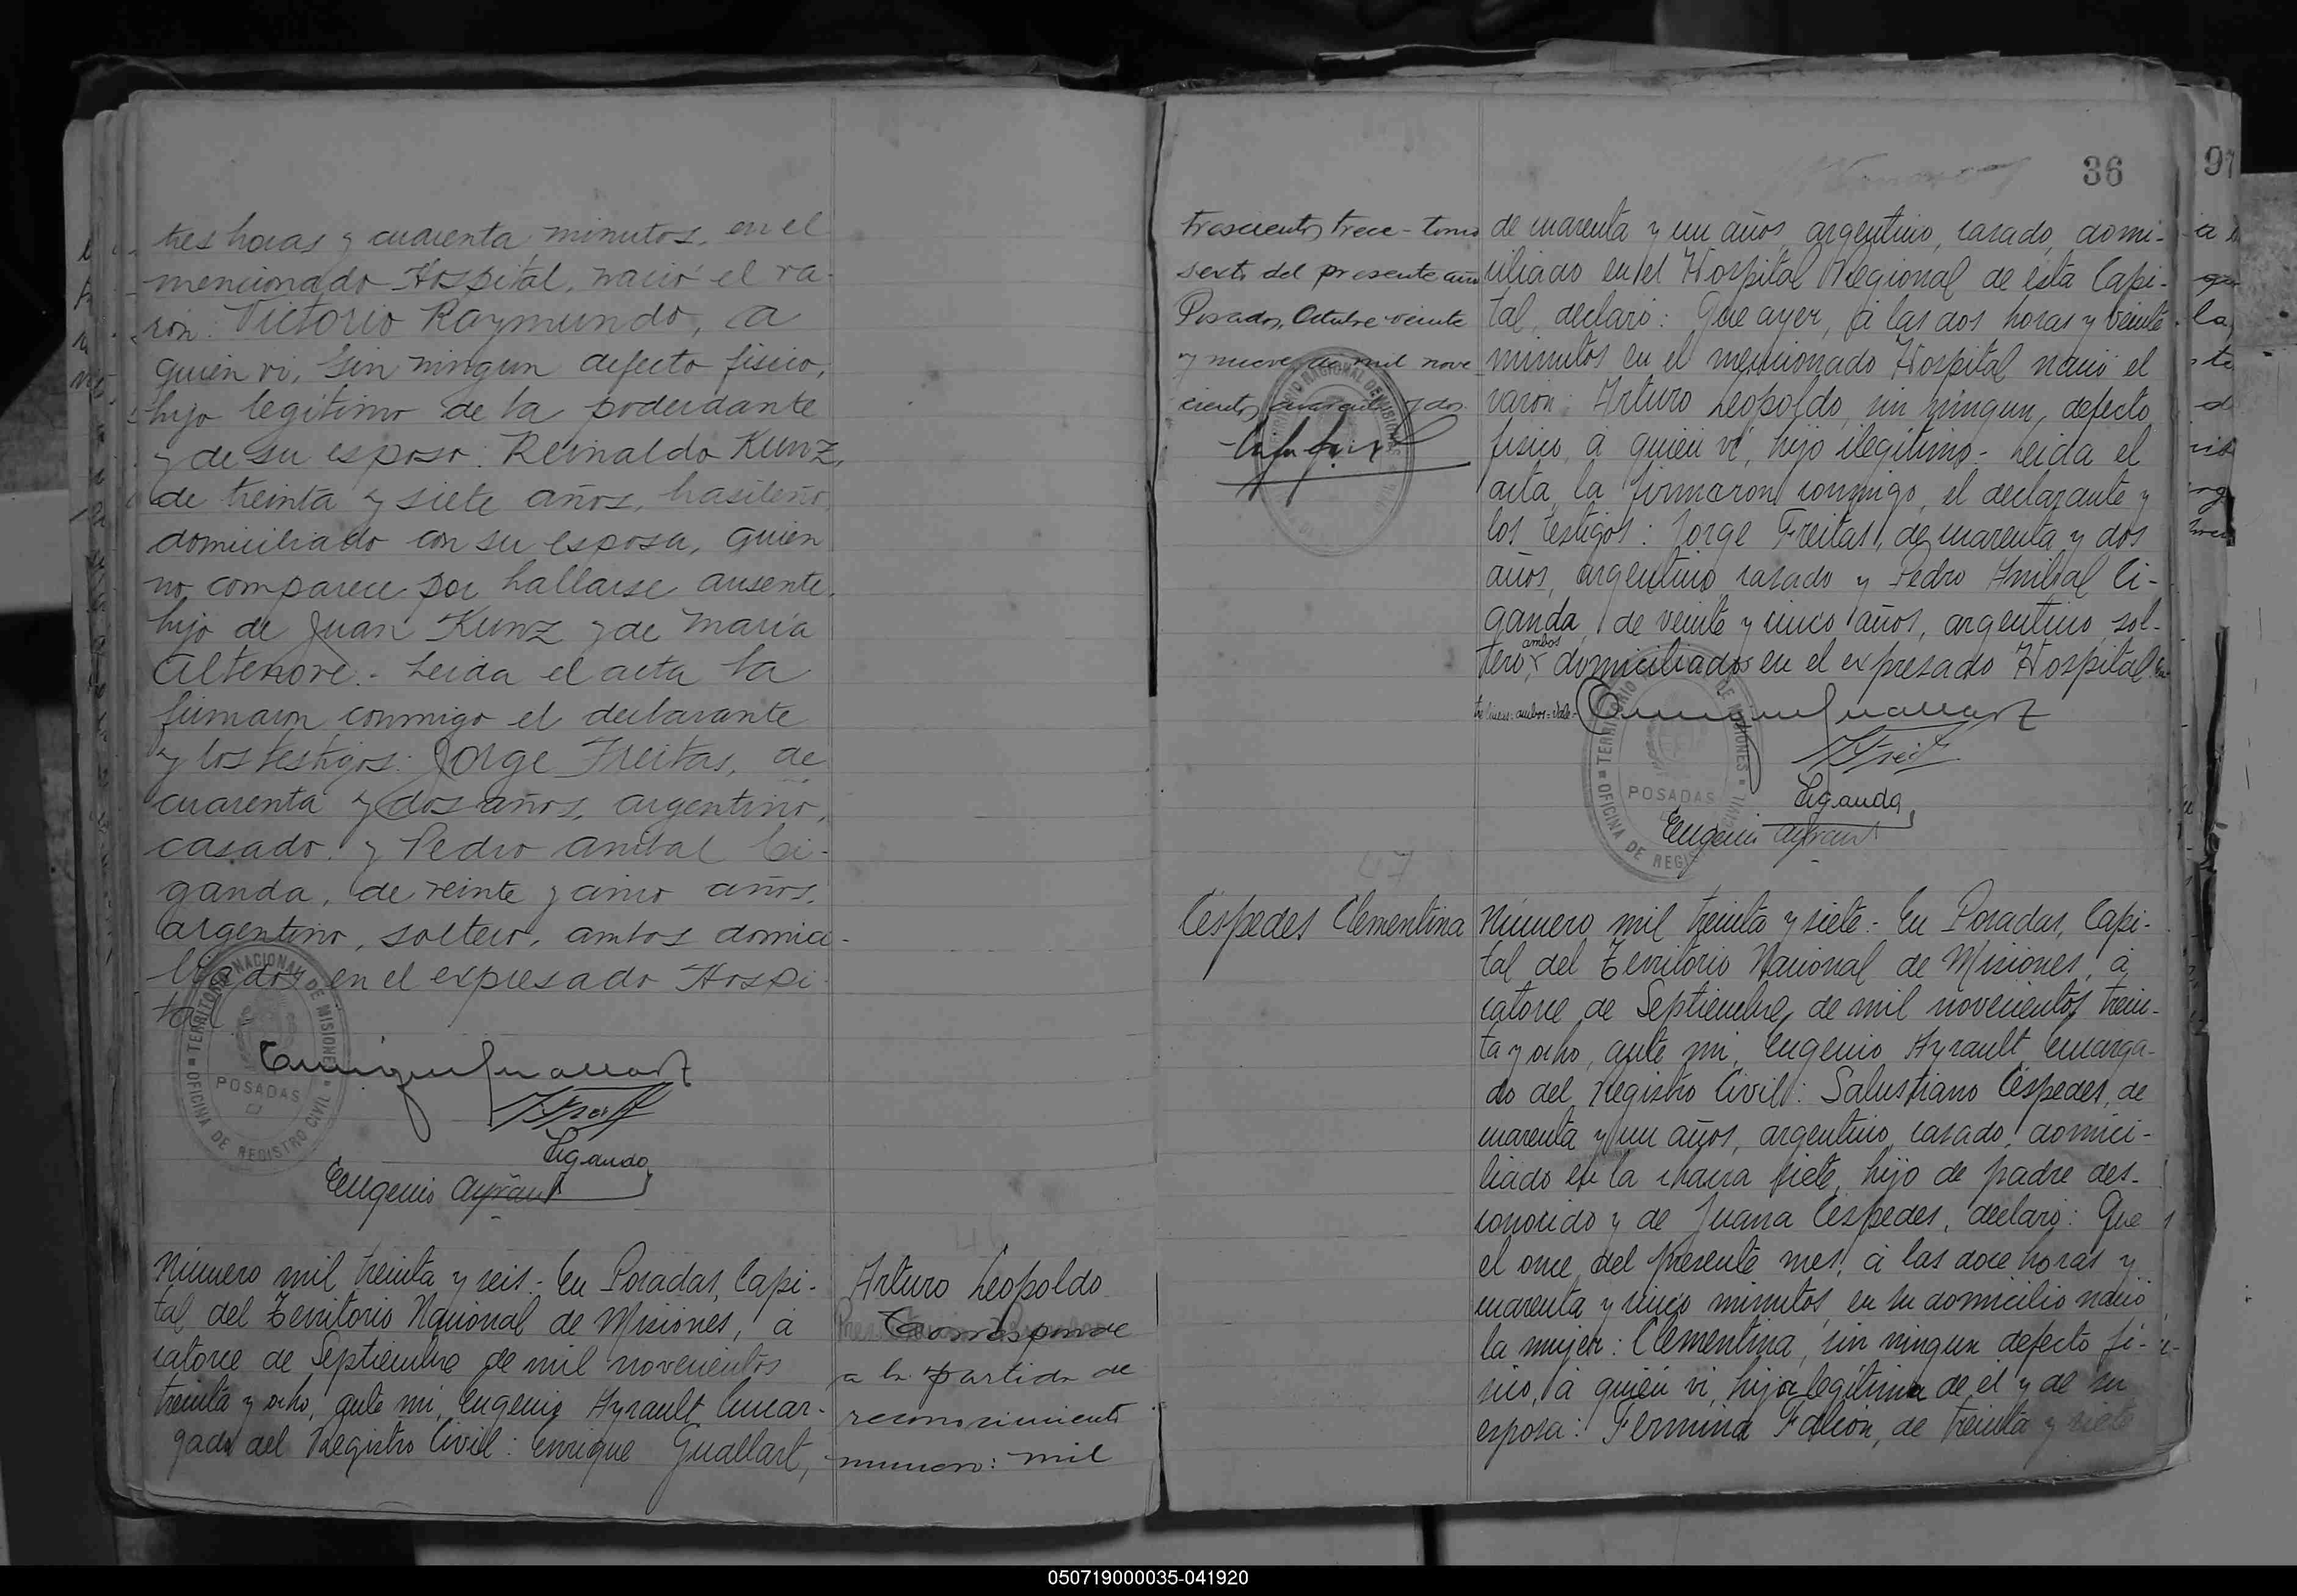 tres horas y cuarenta minutos, en el
mencionado Hospital, nació el va-
rón: Victorio Raymundo, a
quien vi, sin ningun defecto físico,
hijo legítimo de la poderdante
y de su esposo: Reinaldo Kunz,
de treinta y siete años, brasileño,
domiciliado con su esposa, quien
no comparece por hallarse ausente,
hijo de Juan Kunz y de María
Altenore.- Leida el acta la
firmaron conmigo el declarante
y los testigos: Jorge Freitas, de
cuarenta y dos años, argentino,
casado y Pedro Anibal Ci-
ganda, de veinte y cinco años,
argentino, soltero, ambos domici-
liados en el expresado Hospi-
tal.-
TERRITORIO NACIONAL DE MISIONES
POSADAS
OFICINA DE REGISTRO CIVIL
Enrique Guallart
Ciganda
Eugenio Ayrault
Número mil treinta y seis.- En Posadas, Capi-
tal del Territorio Nacional de Misiones, á
catorce de Septiembre de mil novecientos
treinta y ocho, ante mi, Eugenio Ayrault Encar-
gado del Registro Civil: Enrique Guallart,
Arturo Leopoldo
Corresponde
a la partida de
reconocimiento
numero: mil
36
97
trescientos trece - tomo
sexto del presente año
Posadas, Octubre veinte
y nueve de mil nove
cientos cuarenta y dos
de cuarenta y un años, argentino, casado, domi-
ciliado en el Hospital Regional de esta Capi-
tal, declaró: Que ayer, á las dos horas y veinte
minutos en el mencionado Hospital nació el
varón: Arturo Leopoldo, sin ningun defecto
físico, á quién ví, hijo ilegítimo.- Leida el
acta la firmaron conmigo, el declarante y
los testigos: Jorge Freitas, de cuarenta y dos
años, argentino casado y Pedro Anibal Ci-
ganda, de veinte y cinco años, argentino, sol-
tero, ambos domiciliados en el expresado Hospital. En-
tre lineas: ambos: Vale.-
Enrique Guallart
Ciganda
Eugenio Ayrault
TERRITORIO DE MISIONES
POSADAS
OFICINA DE REGISTRO CIVIL
Céspedes Clementina
Número mil treinta y siete.- En Posadas, Capi-
tal del Territorio Nacional de Misiones, á
catorce de Septiembre de mil novecientos trein-
ta y ocho, ante mi, Eugenio Ayrault Encarga-
do del Registro Civil: Salustiano Céspedes, de
cuarenta y un años, argentino, casado, domici-
liado en la chacra siete, hijo de padre des-
conocido y de Juana Céspedes, declaró: Que
el once del presente mes, á las doce horas y
cuarenta y cinco minutos, en su domicilio nació
la mujer: Clementina, sin ningun defecto fí-
sico, á quién vi, hija legítima de él y de su
esposa: Fermina Falcón, de treinta y siete
050719000035-041920